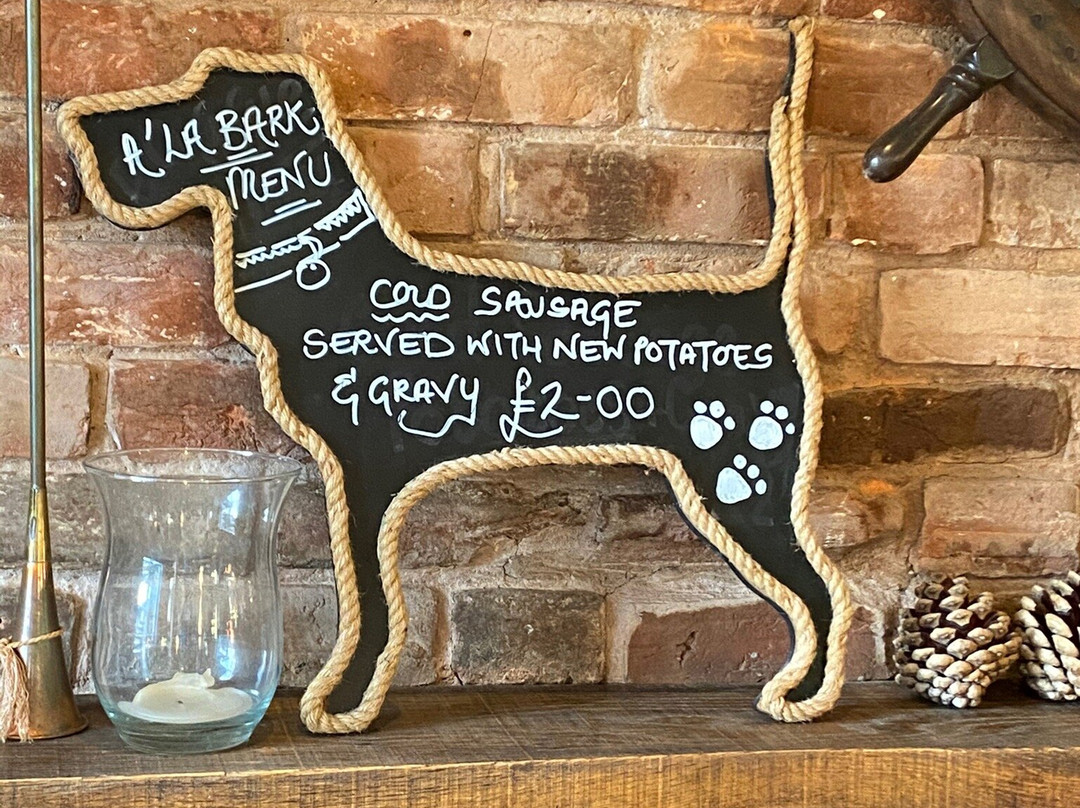 A'LA BARK
MENU
COLD SAUSAGE
SERVED WITH NEW POTATOES
& GRAVY £2-00